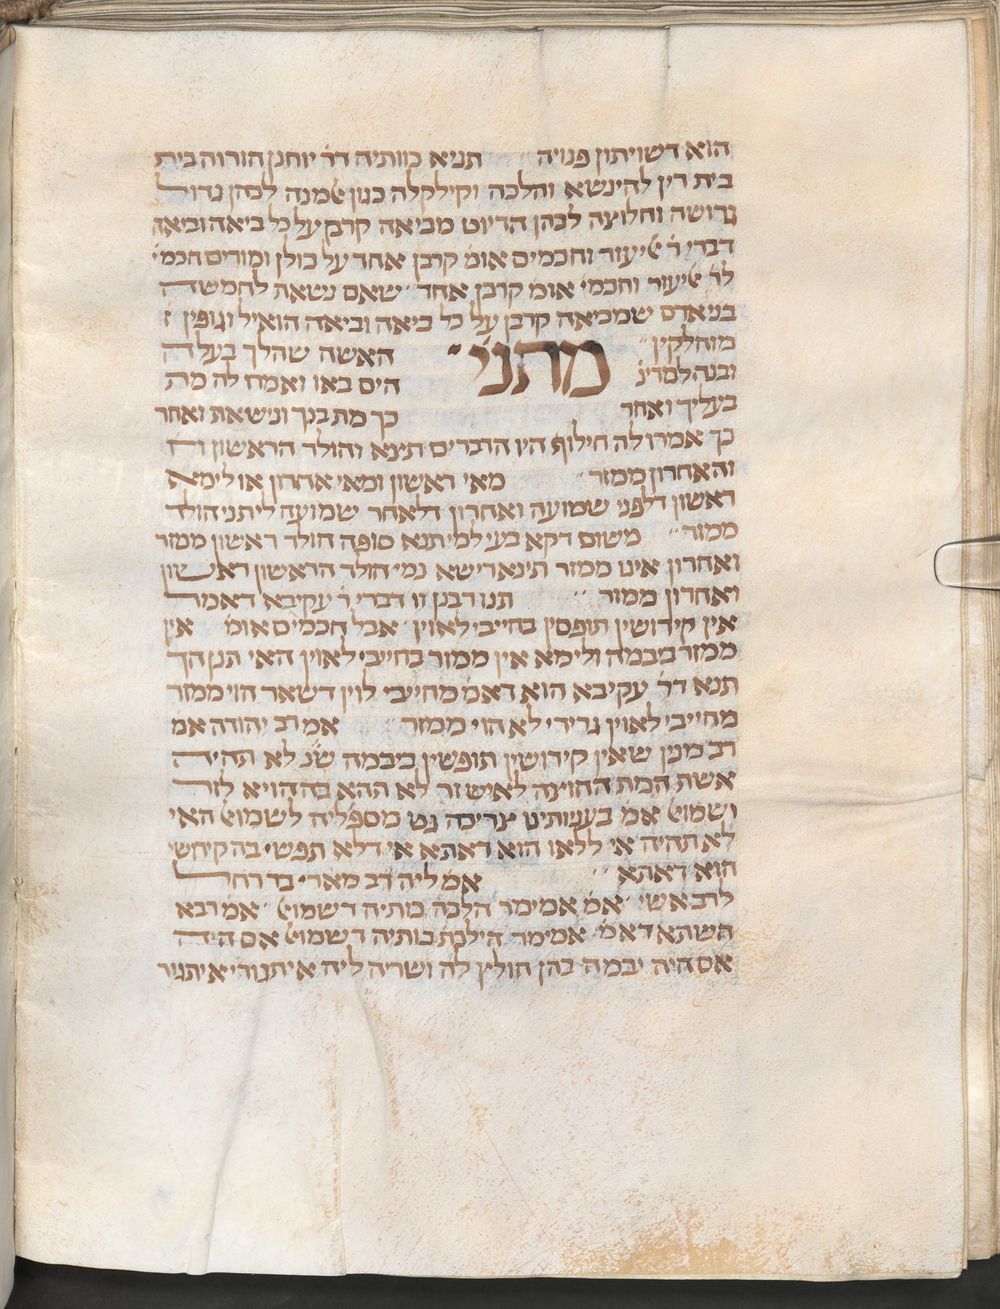 הוא דשויתון פנויה תניא כוותיה דר׳ יוחנן הורוה בית
בית דין להינשא והלכה וקילקלה כגון אלמנה לכהן גדול
גרושה וחלוצה לכהן הדיוט מביאה קרבן על כל ביאה וביאה
דברי ר׳ אליעזר וחכמים אומ׳ קרבן אחד על כולן ומודים חכמי׳
לר׳ אליעזר וחכמי׳ אומ׳ קרבן אחד שאם נשאת לחמשה
בני אדם שמביאה קרבן על כל ביאה וביאה הואיל וגופין
מוחלקין מתני׳ האשה שהלך בעלה
ובנה למדינ׳ הים באו ואמרו לה מת
בעליך ואחר כך מת בנך ונישאת ואחר
כך אמרו לה חילוף היו הדברים תיצא והולד הראשון
והאחרון ממזר מאי ראשון ומאי אחרון אילימא
ראשון דלפני שמועה ואחרון דלאחר שמועה ליתני הולד
ממזר משום דקא בעי למיתנא סופה הולד ראשון ממזר
ואחרון אינו ממזר תינא רישא נמי הולד הראשון ראשון
ואחרון ממזר תנו רבנן זו דברי ר׳ עקיבא דאמר
אין קידושין תופסין בחייבי לאוין אבל חכמים אומ׳ אין
ממזר ביבמה ולימא אין ממזר בחייבי לאוין האי תנן הך
תנא דר׳ עקיבא הוא דאמ׳ מחייבי לוין דשאר הוי ממזר
מחייבי לאוין גרידי לא הוי ממזר אמ׳ רב יהודה אמ׳
רב מנין שאין קידושין תופשין ביבמה שנ׳ לא תהיה
אשת המת החוצה לאיש זר לא תהא בה הויא לזר
ושמואל אמ׳ בעניותינו צריכה גט מספליה לשמואל האי
לא תהיה אי ללאו הוא דאתא אי דלא תפשי בה קיחשי
הוא דאתא אמ׳ ליה רב מארי בר רחל
לרב אשי אמ׳ אמימר הלכה כותיה דשמואל אמ׳ רבא
השתא דאמ׳ אמימר הילכת כותיה דשמואל אם היה
אם היה יבמה כהן חולץ לה ושריה ליה איתגורי איתגיר